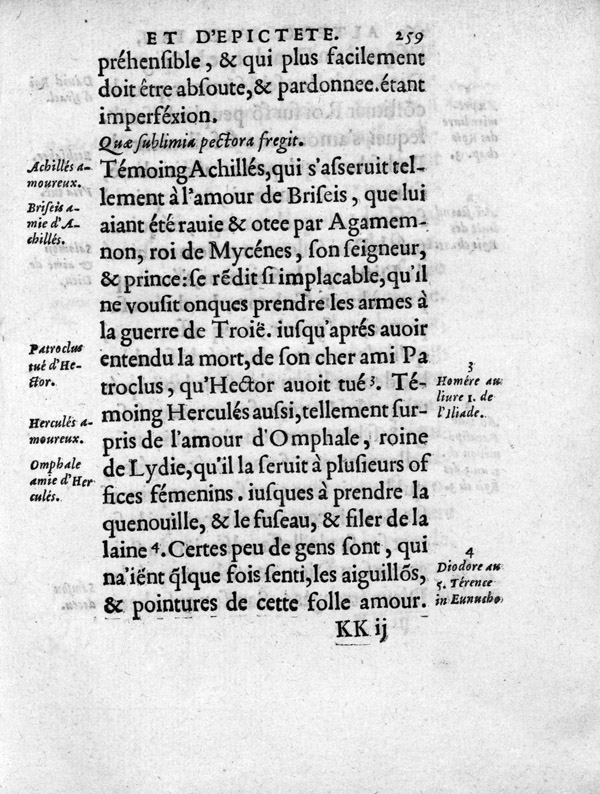 ET D'EPICTETE. 259
préhenſible, & qui plus facilement
doit être abſoute, & pardonnee. étant
imperféxion.
Quæ ſublimia pectora fregit.
Témoing Achillés, qui s'aſſeruit tel-
lement à l'amour de Briſeis, que lui
aiant été rauie & otee par Agamem-
non, roi de Mycénes, ſon ſeigneur,
& prince: ſe rēdit ſi implacable, qu'il
ne vouſit onques prendre les armes à
la guerre de Troië. iuſqu'aprés auoir
entendu la mort, de ſon cher ami Pa
troclus, qu'Hector auoit tué 3. Té-
moing Herculés auſsi, tellement ſur-
pris de l'amour d'Omphale, roine
de Lydie, qu'il la ſeruit à pluſieurs of
fices fémenins. iuſques à prendre la
quenouille, & le fuſeau, & filer de la
laine 4. Certes peu de gens ſont, qui
na'iēnt q̃lque fois ſenti, les aiguillōs,
& pointures de cette folle amour.
KK ij
Achillés a-
moureux.
Briſeis a-
mie d'A-
chillés.
Patroclus
tué d'He-
ctor.
Herculés a-
moureux.
Omphale
amie d'Her
culés.
3
Homére au
liure 1. de
l'Iliade.
4
Diodore au
5. Térence
in Eunucho